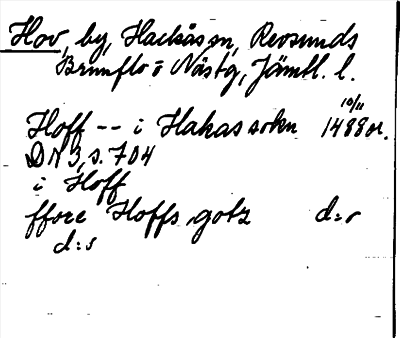 Hov, by, Hackås sn, Revsunds
Brunflo o Näs tg, Jämtl. l.
10/11
Hoff -- i Hakas sokn 1488 or.
DN 3, s. 704
i Hoff
ffore Hoffs gotz d:o
d:s